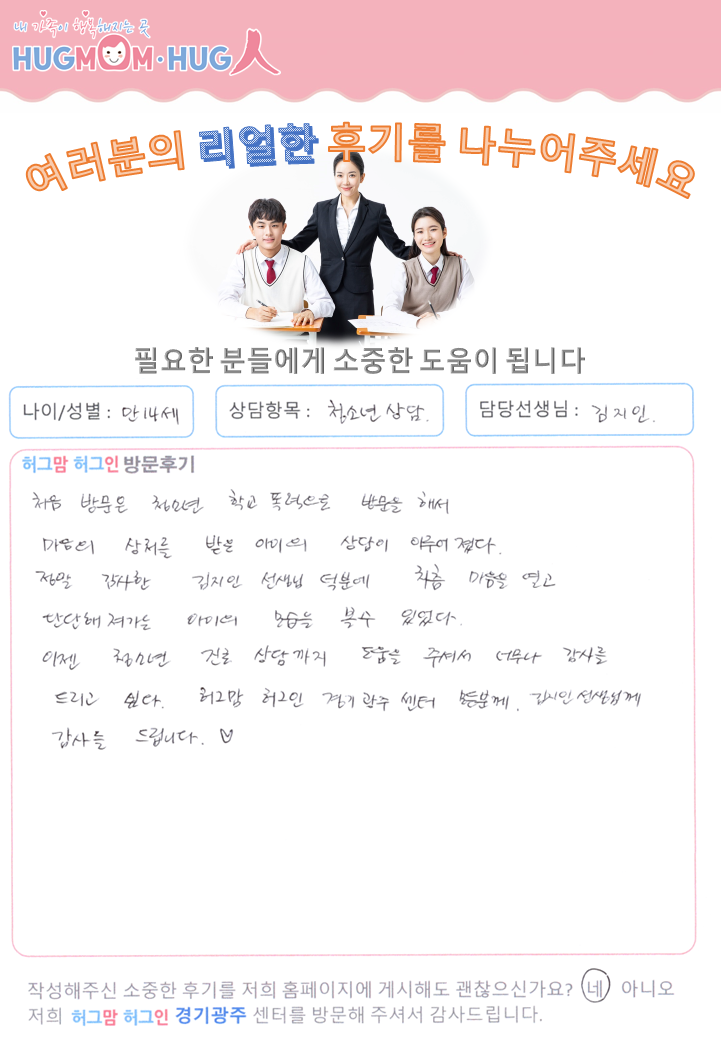 내 가족이 행복해지는 곳
HUGMOM·HUG人
여러분의 리얼한 후기를 나누어주세요
필요한 분들에게 소중한 도움이 됩니다
나이/성별 : 만14세
상담항목 : 청소년 상담.
담당선생님 : 김지인.
허그맘 허그인 방문후기
처음 방문은 청소년 학교 폭력으로 방문을 해서
마음의 상처를 받은 아이의 상담이 이루어졌다.
정말 감사한 김지인 선생님 덕분에 차츰 마음을 열고
단단해져가는 아이의 모습을 볼수 있었다.
이젠 청소년 진로 상담까지 도움을 주셔서 너무나 감사를
드리고 싶다. 허그맘 허그인 경기광주 센터 모든분께. 김지인 선생님께
감사를 드립니다. ♡
작성해주신 소중한 후기를 저희 홈페이지에 게시해도 괜찮으신가요? 네 아니오
저희 허그맘 허그인 경기광주 센터를 방문해 주셔서 감사드립니다.